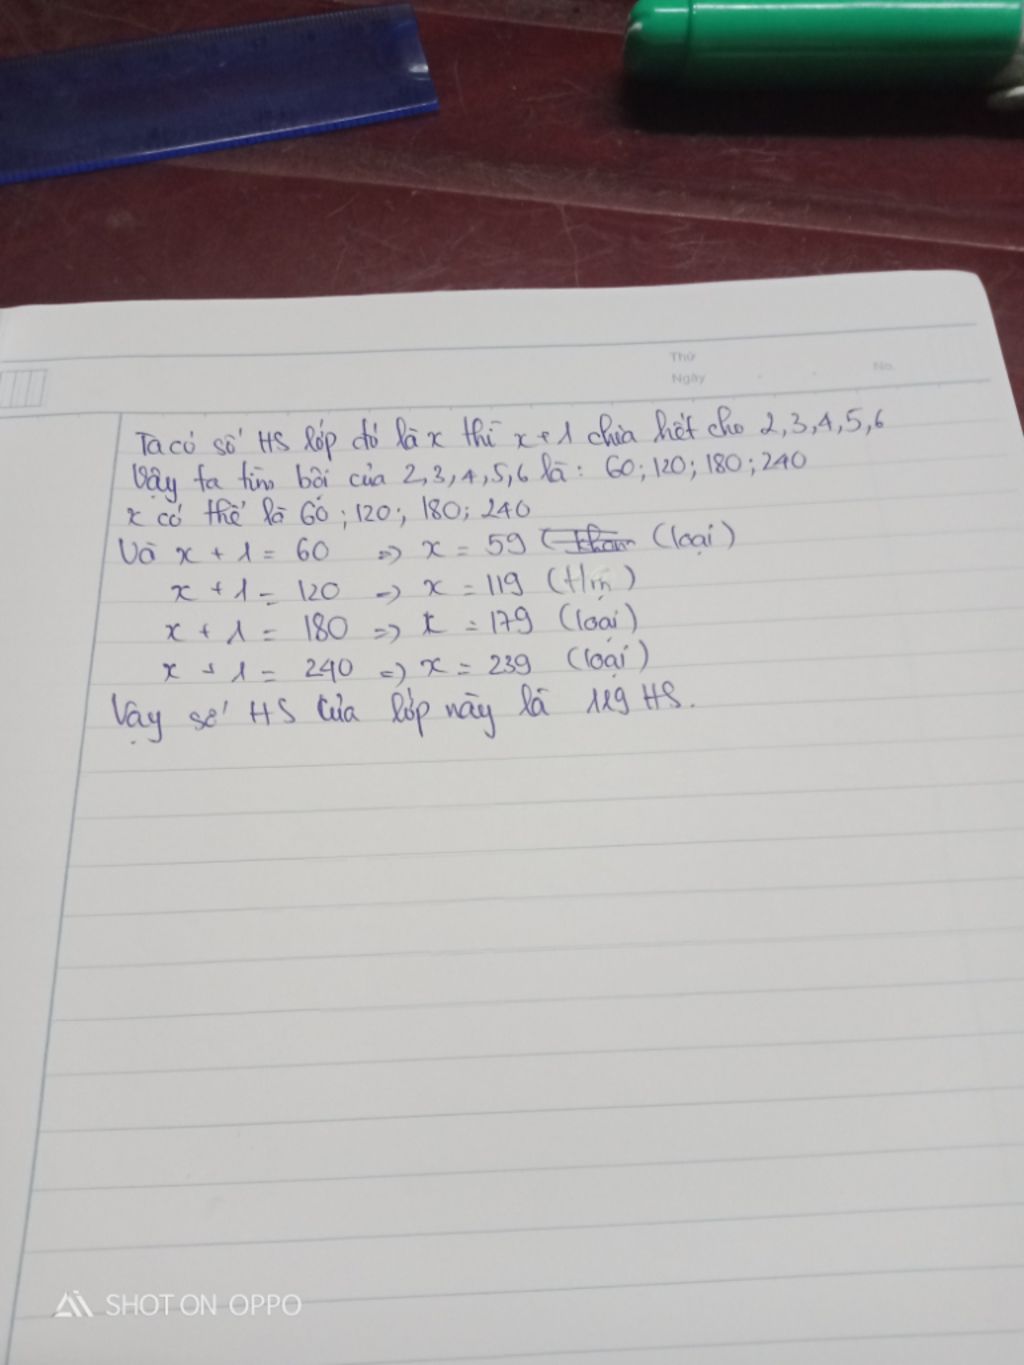 Thứ
Ngày
No
Ta có số HS lớp đó là x thì x + 1 chia hết cho 2,3,4,5,6
Vậy ta tìm bội của 2,3,4,5,6 là: 60; 120; 180; 240
x có thể là 60; 120; 180; 240
Và x + 1 = 60 => x = 59 (loại)
x + 1 = 120 => x = 119 (t/m)
x + 1 = 180 => x = 179 (loại)
x + 1 = 240 => x = 239 (loại)
Vậy số HS của lớp này là 119 HS.
SHOT ON OPPO